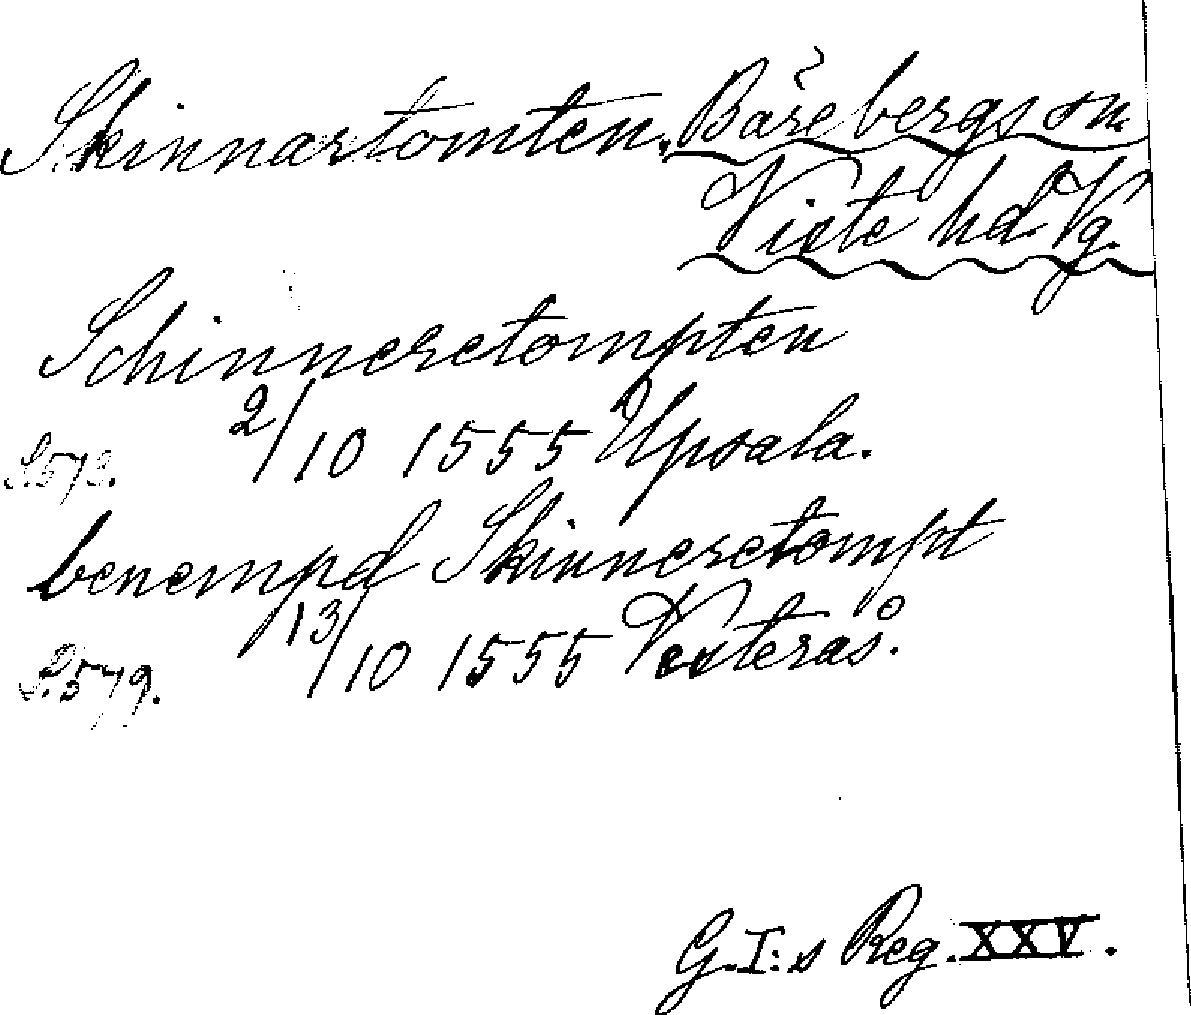 Skinnartomten. Bärebergs sn.
Viste hd. Vg.
Schinneretompten
S. 573. 2/10 1555 Upsala.
benempd Skinneretompt
S. 579. 13/10 1555 Vesterås.
G. I:s Reg. XXV.